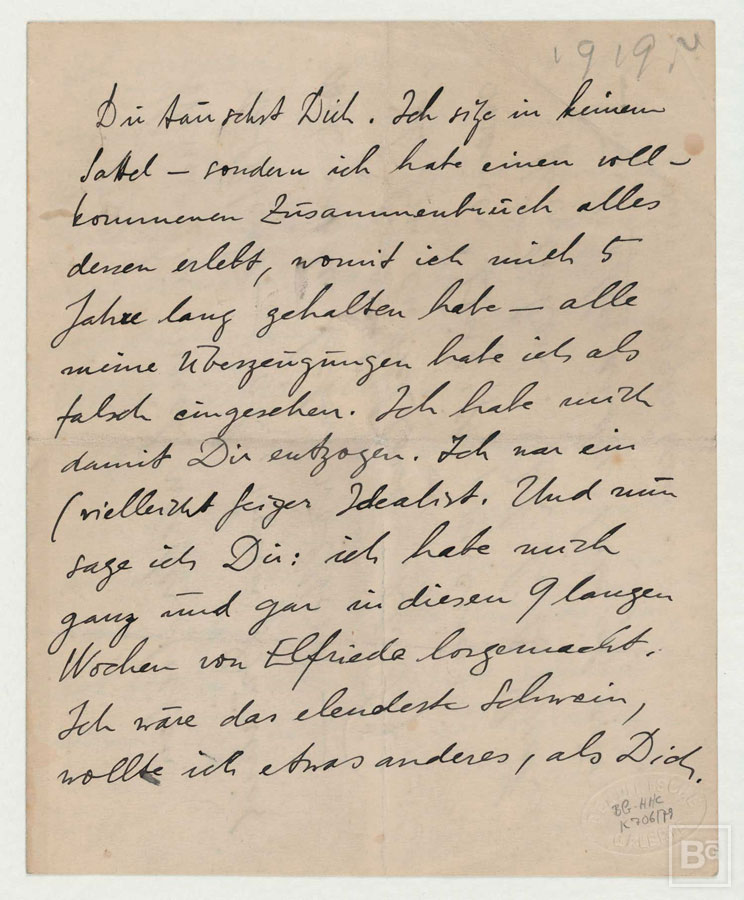 1919
Du täuschst Dich. Ich sitze in keinem
Sattel – sondern ich habe einen voll-
kommenen Zusammenbruch alles
dessen erlebt, womit ich mich 5
Jahre lang gehalten habe – alle
meine Überzeugungen habe ich als
falsch eingesehen. Ich habe mich
damit Dir entzogen. Ich war ein
(vielleicht feiger Idealist. Und nun
sage ich Dir: ich habe mich
ganz und gar in diesen 9 langen
Wochen von Elfriede losgemacht.
Ich wäre das elendeste Schwein,
wollte ich etwas anderes, als Dich.
BG-HHC
K 706/79
BG